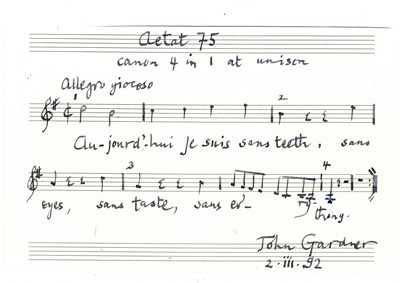 Aetat 75
canon 4 in 1 at unison
Allegro giocoso
2
Au-jourd'-hui Je suis sans teeth, sans
3 4
eyes, sans taste, sans er- ry-
thing.
John Gardner
2. iii. 92